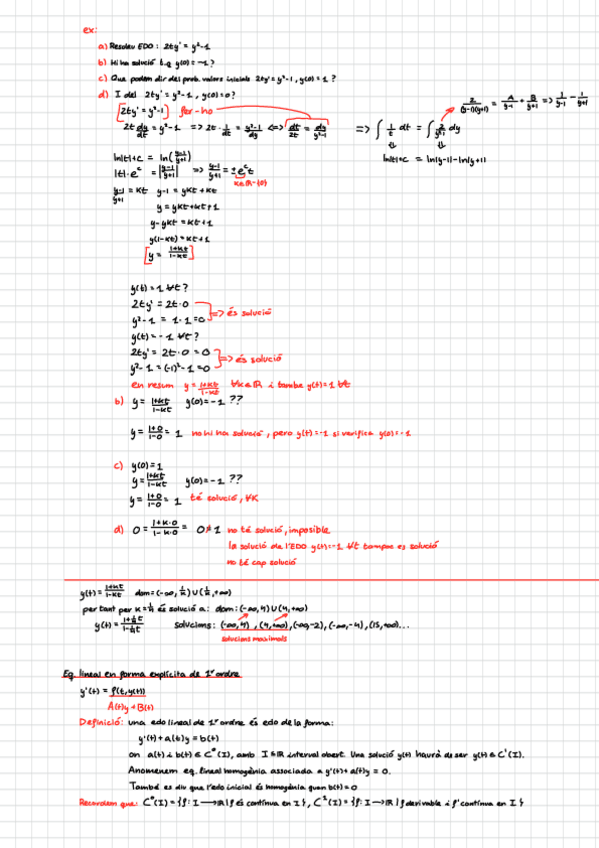 ex:
a) Resoleu EDO: 2ty' = y²-1
b) Hi ha solució t.q y(0) = -1?
c) Que podem dir del prob. valors inicials 2ty' = y²-1, y(0) = 1?
d) I del 2ty' = y²-1, y(0) = 0?
[2ty' = y²-1] fer-ho
2t dy/dt = y²-1 => 2t · 1/dt = y²-1/dy <=> dt/2t = dy/y²-1 => ∫ 1/t dt = ∫ 2/y²-1 dy
2/(y-1)(y+1) = A/y-1 + B/y+1 => 1/y-1 - 1/y+1
ln|t|+c = ln|y-1|-ln|y+1|
ln|t|+c = ln(y-1/y+1)
|t|·e^c = |y-1/y+1| => y-1/y+1 = ±e^c t
K∈ℝ-{0}
y-1/y+1 = Kt y-1 = yKt+Kt
y = yKt+Kt+1
y-yKt = Kt+1
y(1-Kt) = Kt+1
[y = 1+Kt/1-Kt]
y(t) = 1 ∀t?
2ty' = 2t·0
y²-1 = 1·1 = 0 => és solució
y(t) = -1 ∀t?
2ty' = 2t·0 = 0
y²-1 = (-1)²-1 = 0 => és solució
en resum y = 1+Kt/1-Kt ∀K∈ℝ i també y(t)=1 ∀t
b) y = 1+Kt/1-Kt y(0) = -1 ??
y = 1+0/1-0 = 1 no hi ha solució, pero y(t) = -1 si verifica y(0) = -1
c) y(0) = 1
y = 1+Kt/1-Kt y(0) = -1 ??
y = 1+0/1-0 = 1 té solució, ∀K
d) 0 = 1+K·0/1-K·0 = 0≠1 no té solució, imposible
la solució de l'EDO y(t)=-1 ∀t tampoc es solució
no té cap solució
y(t) = 1+Kt/1-Kt dom = (-∞, 1/K) ∪ (1/K, +∞)
per tant per K = 1/4 és solució a: dom: (-∞, 4) ∪ (4, +∞)
y(t) = 1+1/4t/1-1/4t solucions: (-∞, 4), (4, +∞), (-∞, -2), (-∞, -4), (15, +∞)...
solucions maximals
Eq. lineal en forma explícita de 1r ordre
y'(t) = f(t, y(t))
A(t)y + B(t)
Definició: una edo lineal de 1r ordre és edo de la forma:
y'(t) + a(t)y = b(t)
on a(t) i b(t) ∈ C⁰(I), amb I ⊆ ℝ interval obert. Una solució y(t) haurà de ser y(t) ∈ C¹(I).
Anomenem eq. lineal homogènia associada a y'(t) + a(t)y = 0.
També es diu que l'edo inicial és homogènia quan b(t) = 0
Recordem que: C⁰(I) = {f: I → ℝ | f és contínua en I}, C¹(I) = {f: I → ℝ | f derivable i f' contínua en I}